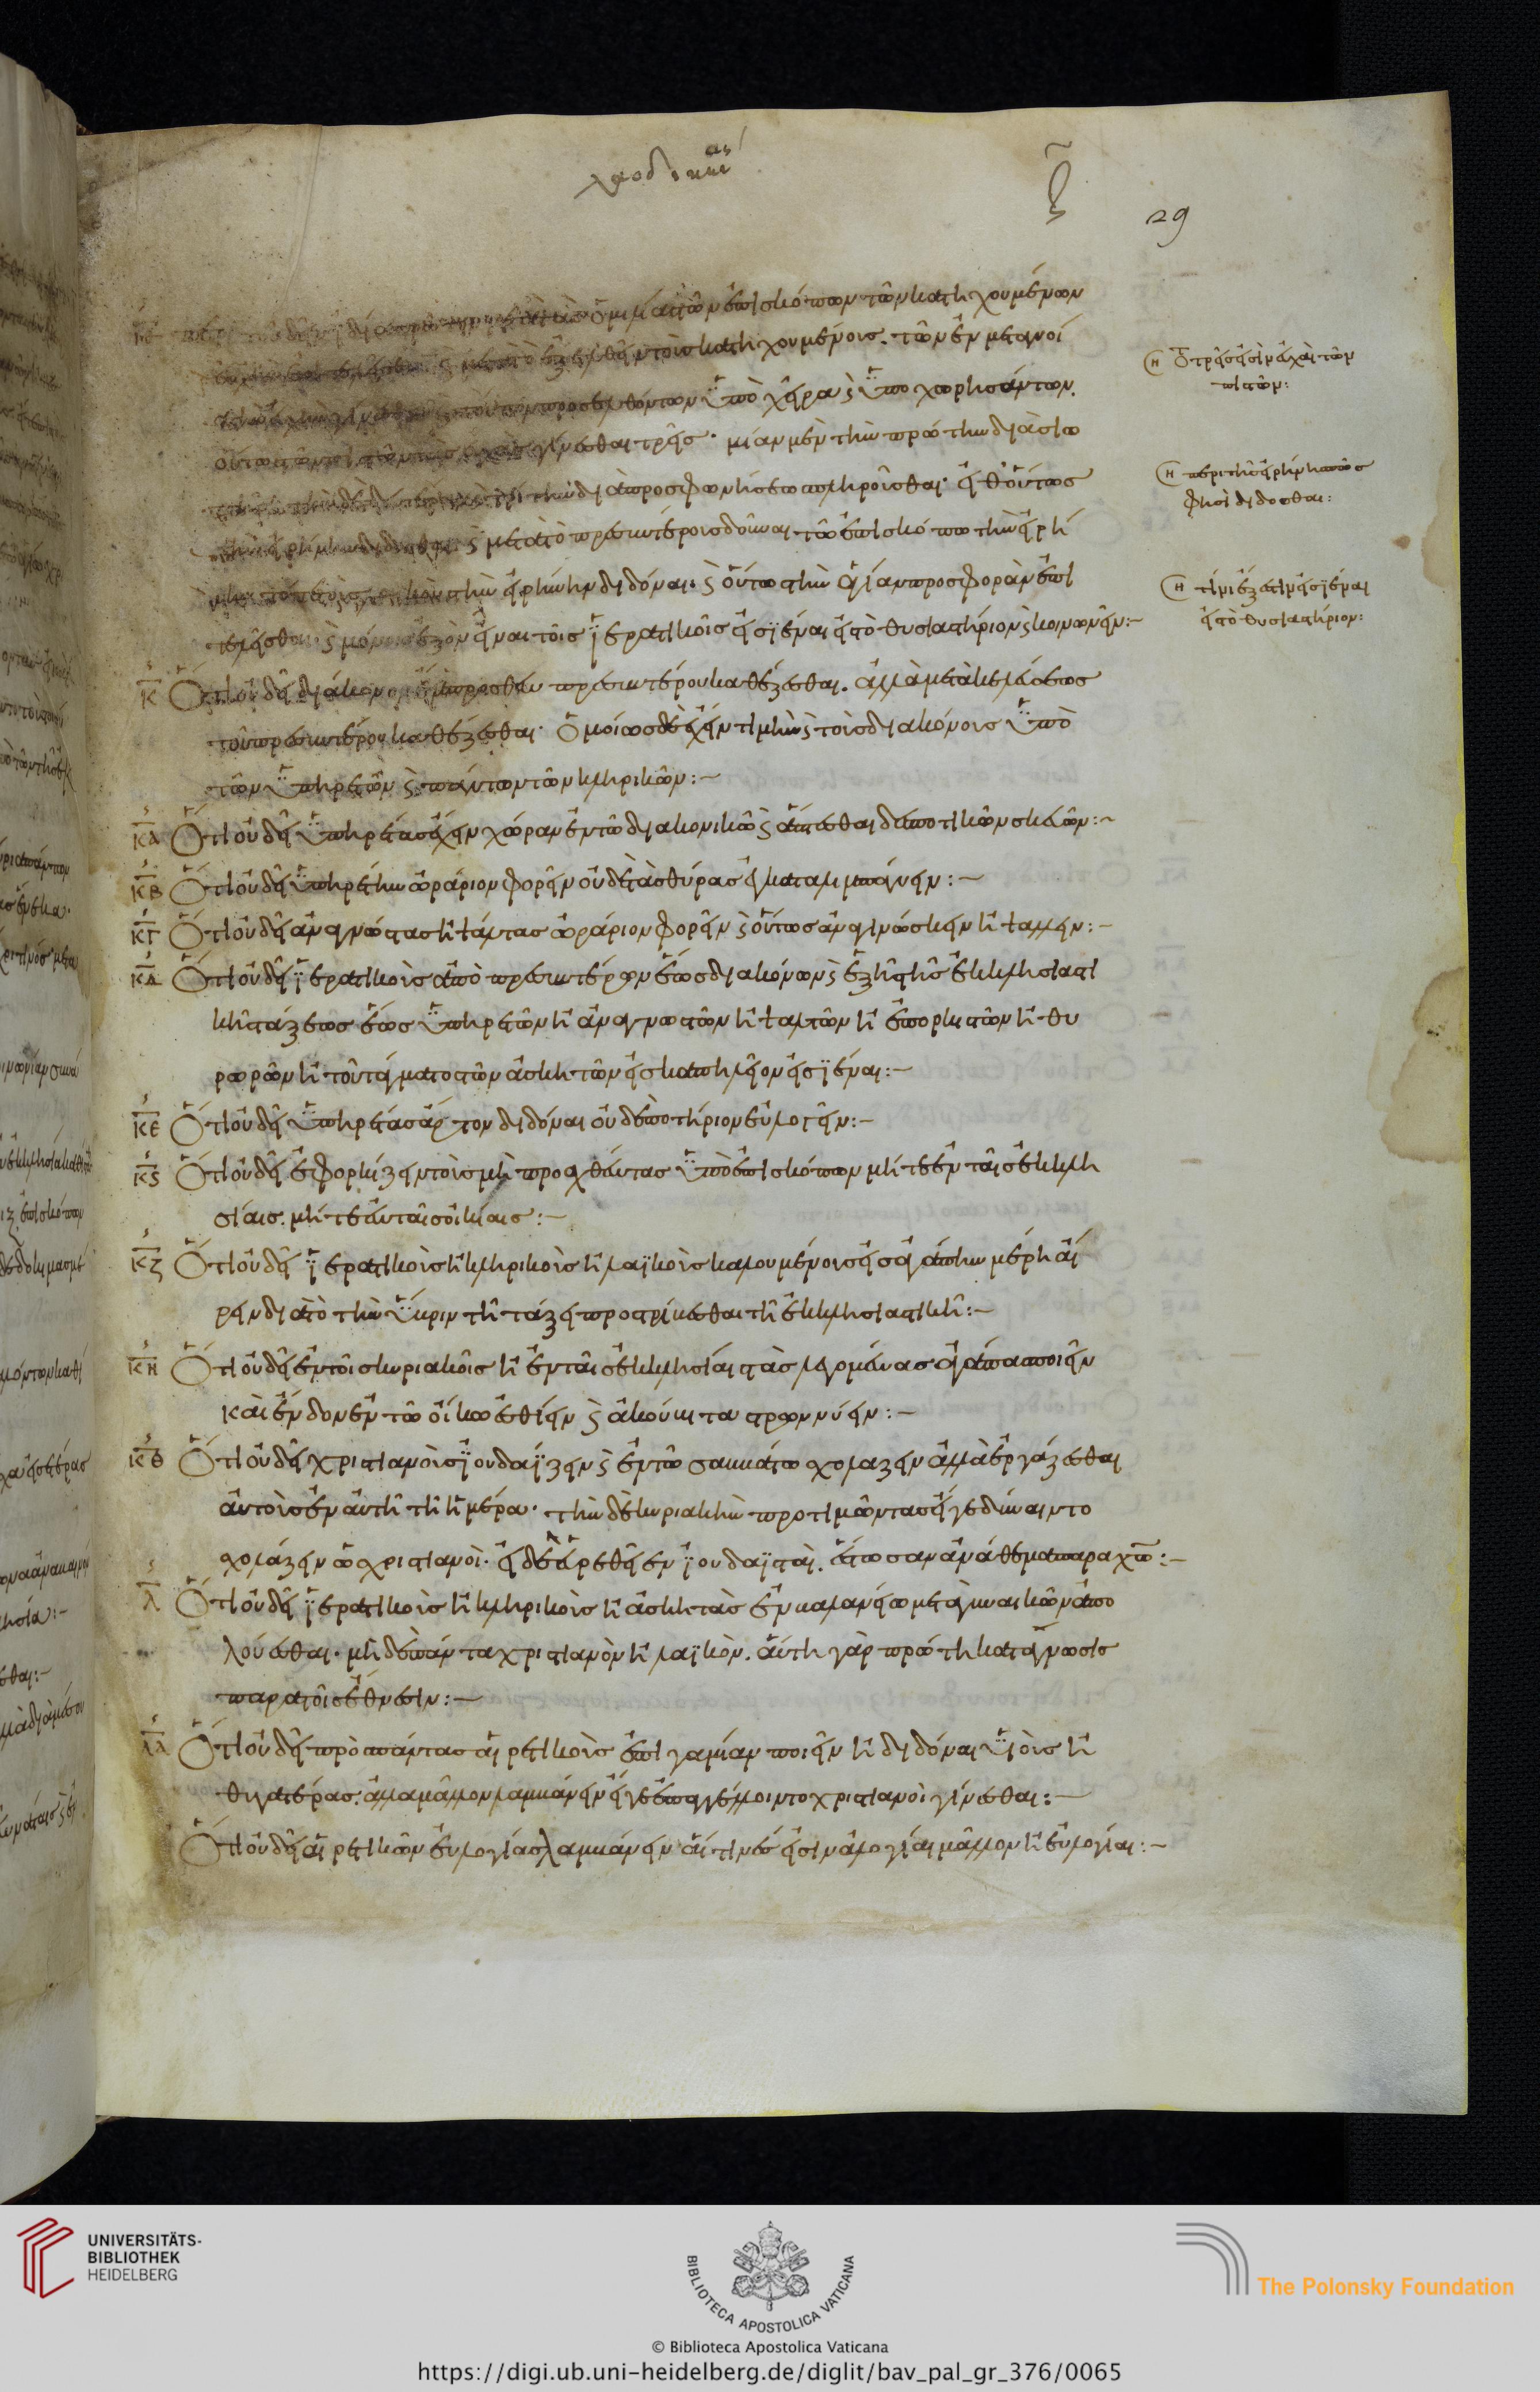 λαοδικείας
29
τῶν ἐπισκόπων τῶν κατηχουμένων
μετὰ τὸ ἐξελθεῖν τοὺς κατηχουμένους. τῶν ἐν μετανοί
τούτων προσελθόντων ὑπὸ χεῖρα καὶ ὑποχωρησάντων.
οὕτω τῶν πιστῶν τὰς εὐχὰς γίνεσθαι τρεῖς· μίαν μὲν τὴν πρώτην διὰ σιω
τὴν δὲ δευτέραν καὶ τρίτην διὰ προσφωνήσεως πληροῦσθαι· εἶθ' οὕτως
τὴν εἰρήνην δίδοσθαι. καὶ μετὰ τὸ πρεσβυτέρους δοῦναι τῶ ἐπισκόπω τὴν εἰρή
νην τότε τοὺς λαϊκοὺς τὴν εἰρήνην διδόναι. καὶ οὕτω τὴν ἁγίαν προσφορὰν ἐπι
τελεῖσθαι. καὶ μόνοις ἐξὸν εἶναι τοῖς ἱερατικοῖς εἰσϊέναι εἰς τὸ θυσιαστήριον καὶ κοινωνεῖν:–
ση ὅτι τρεῖς εἰσὶν εὐχαὶ τῶν
πιστῶν:
ση περὶ τῆς εἰρήνης πῶς
φησὶ δίδοσθαι:
ση τίσιν ἔξεστιν εἰσϊέναι
εἰς τὸ θυσιαστήριον:
κ Ὅτι οὐ δεῖ διάκονον ἔμπροσθεν πρεσβυτέρου καθέζεσθαι. ἀλλὰ μετὰ κελεύσεως
τοῦ πρεσβυτέρου καθέζεσθαι· ὁμοίως δὲ ἔχειν τιμὴν καὶ τοὺς διακόνους ὑπὸ
τῶν ὑπηρετῶν καὶ πάντων τῶν κληρικῶν:–
κα Ὅτι οὐ δεῖ ὑπηρέτας ἔχειν χώραν ἐν τῶ διακονικῶ καὶ ἅπτεσθαι δεσποτικῶν σκευῶν:–
κβ Ὅτι οὐ δεῖ ὑπηρέτην ὠράριον φορεῖν οὐδὲ τὰς θύρας ἐγκαταλιμπάνειν:–
κγ Ὅτι οὐ δεῖ ἀναγνώστας ἢ ψάλτας ὠράριον φορεῖν καὶ οὕτως ἀναγινώσκειν ἢ ψάλλειν:–
κδ Ὅτι οὐ δεῖ ἱερατικοὺς ἀπὸ πρεσβυτέρων ἕως διακόνων καὶ ἑξῆς τῆς ἐκκλησιαστι
κῆς τάξεως ἕως ὑπηρετῶν ἢ ἀναγνωστῶν ἢ ψαλτῶν ἢ ἐπορκιστῶν ἢ θυ
ρωρῶν ἢ τοῦ τάγματος τῶν ἀσκητῶν εἰς καπηλεῖον εἰσϊέναι:–
κε Ὅτι οὐ δεῖ ὑπηρέτας ἄρτον διδόναι οὐδὲ ποτήριον εὐλογεῖν:–
κϛ Ὅτι οὐ δεῖ ἐφορκίζειν τοὺς μὴ προαχθέντας ὑπὸ ἐπισκόπων μήτε ἐν ταῖς ἐκκλη
σίαις. μήτε ἐν ταῖς οἰκίαις:–
κζ Ὅτι οὐ δεῖ ἱερατικοὺς ἢ κληρικοὺς ἢ λαϊκοὺς καλουμένους εἰς ἀγάπην μέρη αἴ
ρειν διὰ τὸ τὴν ὕβριν τῆ τάξει προστρίβεσθαι τῆ ἐκκλησιαστικῆ:–
κη Ὅτι οὐ δεῖ ἐν τοῖς κυριακοῖς ἢ ἐν ταῖς ἐκκλησίαις τὰς λεγομένας ἀγάπας ποιεῖν
καὶ ἔνδον ἐν τῶ οἴκω ἐσθίειν καὶ ἀκούβιτα στρωννύειν:–
κθ Ὅτι οὐ δεῖ χριστιανοὺς ἰουδαΐζειν καὶ ἐν τῶ σαββάτω σχολάζειν ἀλλὰ ἐργάζεσθαι
αὐτοὺς ἐν αὐτῆ τῆ ἡμέρα· τὴν δὲ κυριακὴν προτιμῶντας εἴγε δύναιντο
σχολάζειν ὡς χριστιανοί· εἰ δὲ εὑρεθεῖεν ἰουδαϊσταί. ἔστωσαν ἀνάθεμα παρὰ χ͞ω:–
λ Ὅτι οὐ δεῖ ἱερατικοὺς ἢ κληρικοὺς ἢ ἀσκητὰς ἐν βαλανείω μετὰ γυναικῶν ἀπο
λούεσθαι· μὴ δὲ πάντα χριστιανὸν ἢ λαϊκόν. αὕτη γὰρ πρώτη κατάγνωσις
παρὰ τοῖς ἔθνεσιν:–
λα Ὅτι οὐ δεῖ πρὸς πάντας αἱρετικοὺς ἐπιγαμίαν ποιεῖν ἢ διδόναι υἱοὺς ἢ
θυγατέρας. ἀλλὰ μᾶλλον λαμβάνειν εἴγε ἐπαγγέλλοιντο χριστιανοὶ γίνεσθαι:–
Ὅτι οὐ δεῖ αἱρετικῶν εὐλογίας λαμβάνειν αἵτινές εἰσιν ἀλογίαι μᾶλλον ἢ εὐλογίαι:–
UNIVERSITÄTS-
BIBLIOTHEK
HEIDELBERG
BIBLIOTECA APOSTOLICA VATICANA
© Biblioteca Apostolica Vaticana
The Polonsky Foundation
https://digi.ub.uni-heidelberg.de/diglit/bav_pal_gr_376/0065